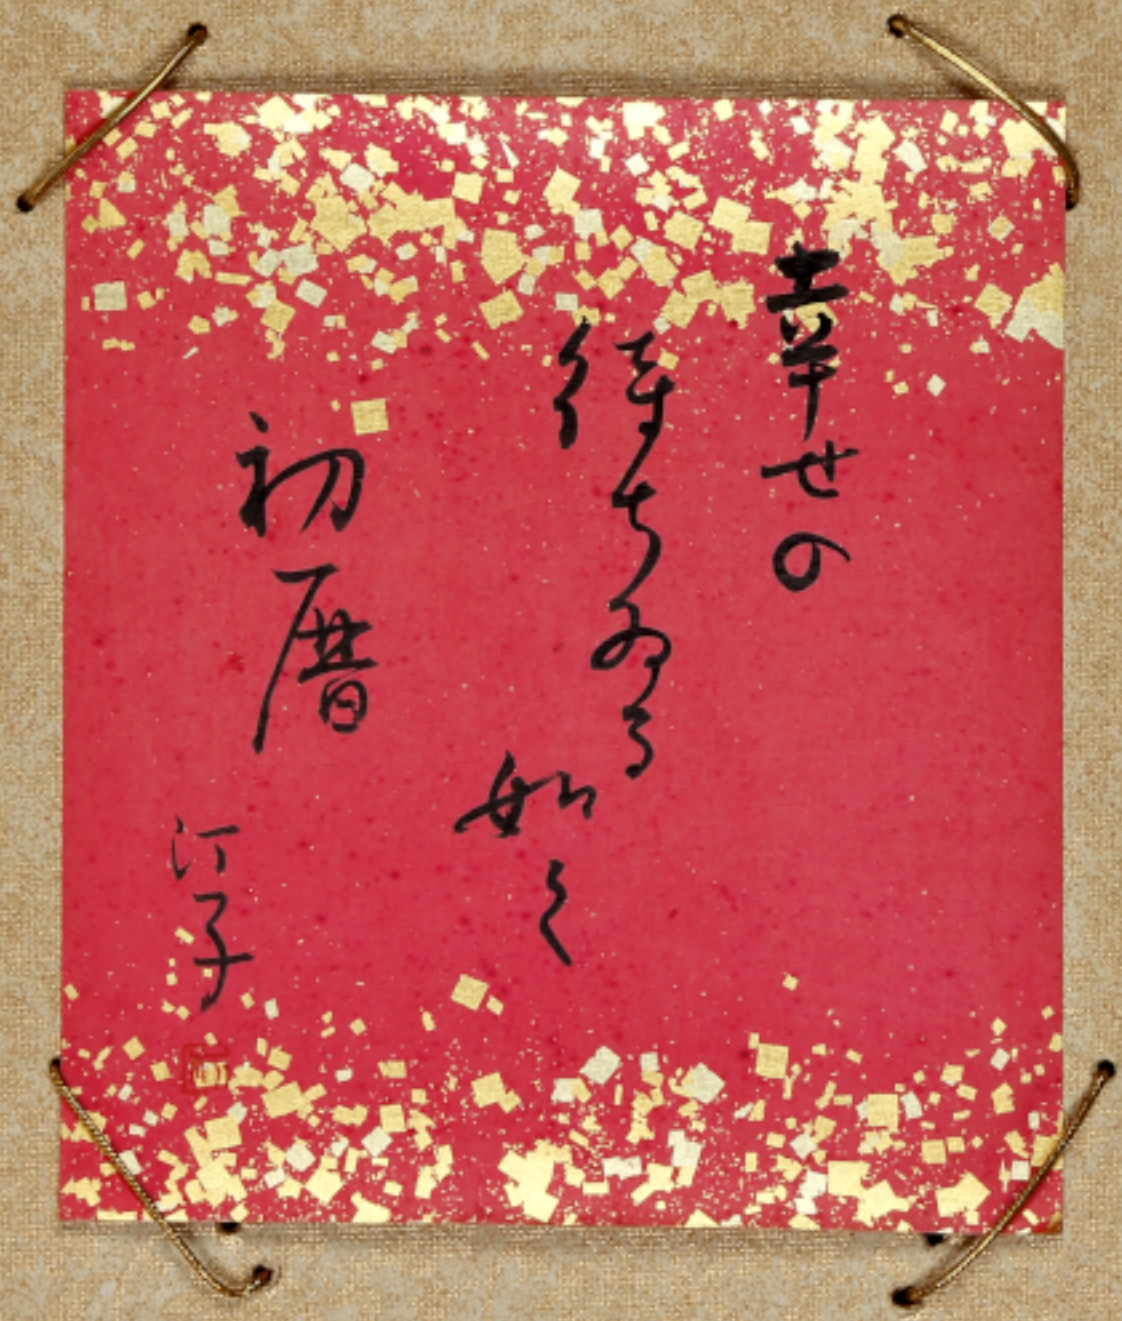 幸せの
待ちゐる
如く
初暦
汀子